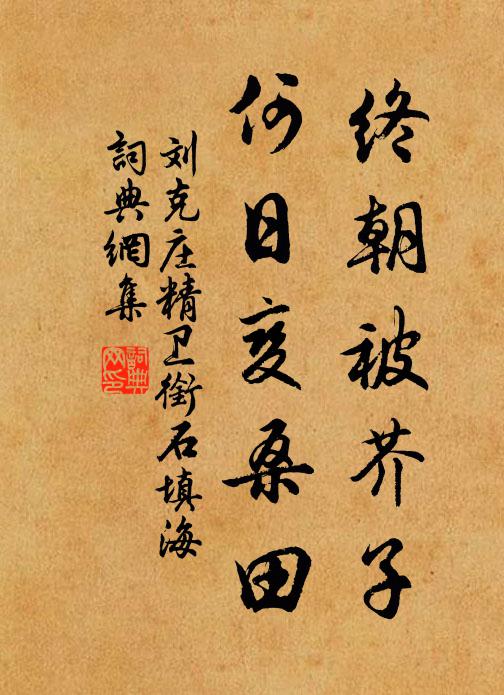 终朝被芥子
何日变桑田
刘克庄精卫衔石填海
詞典網集
詞典网印